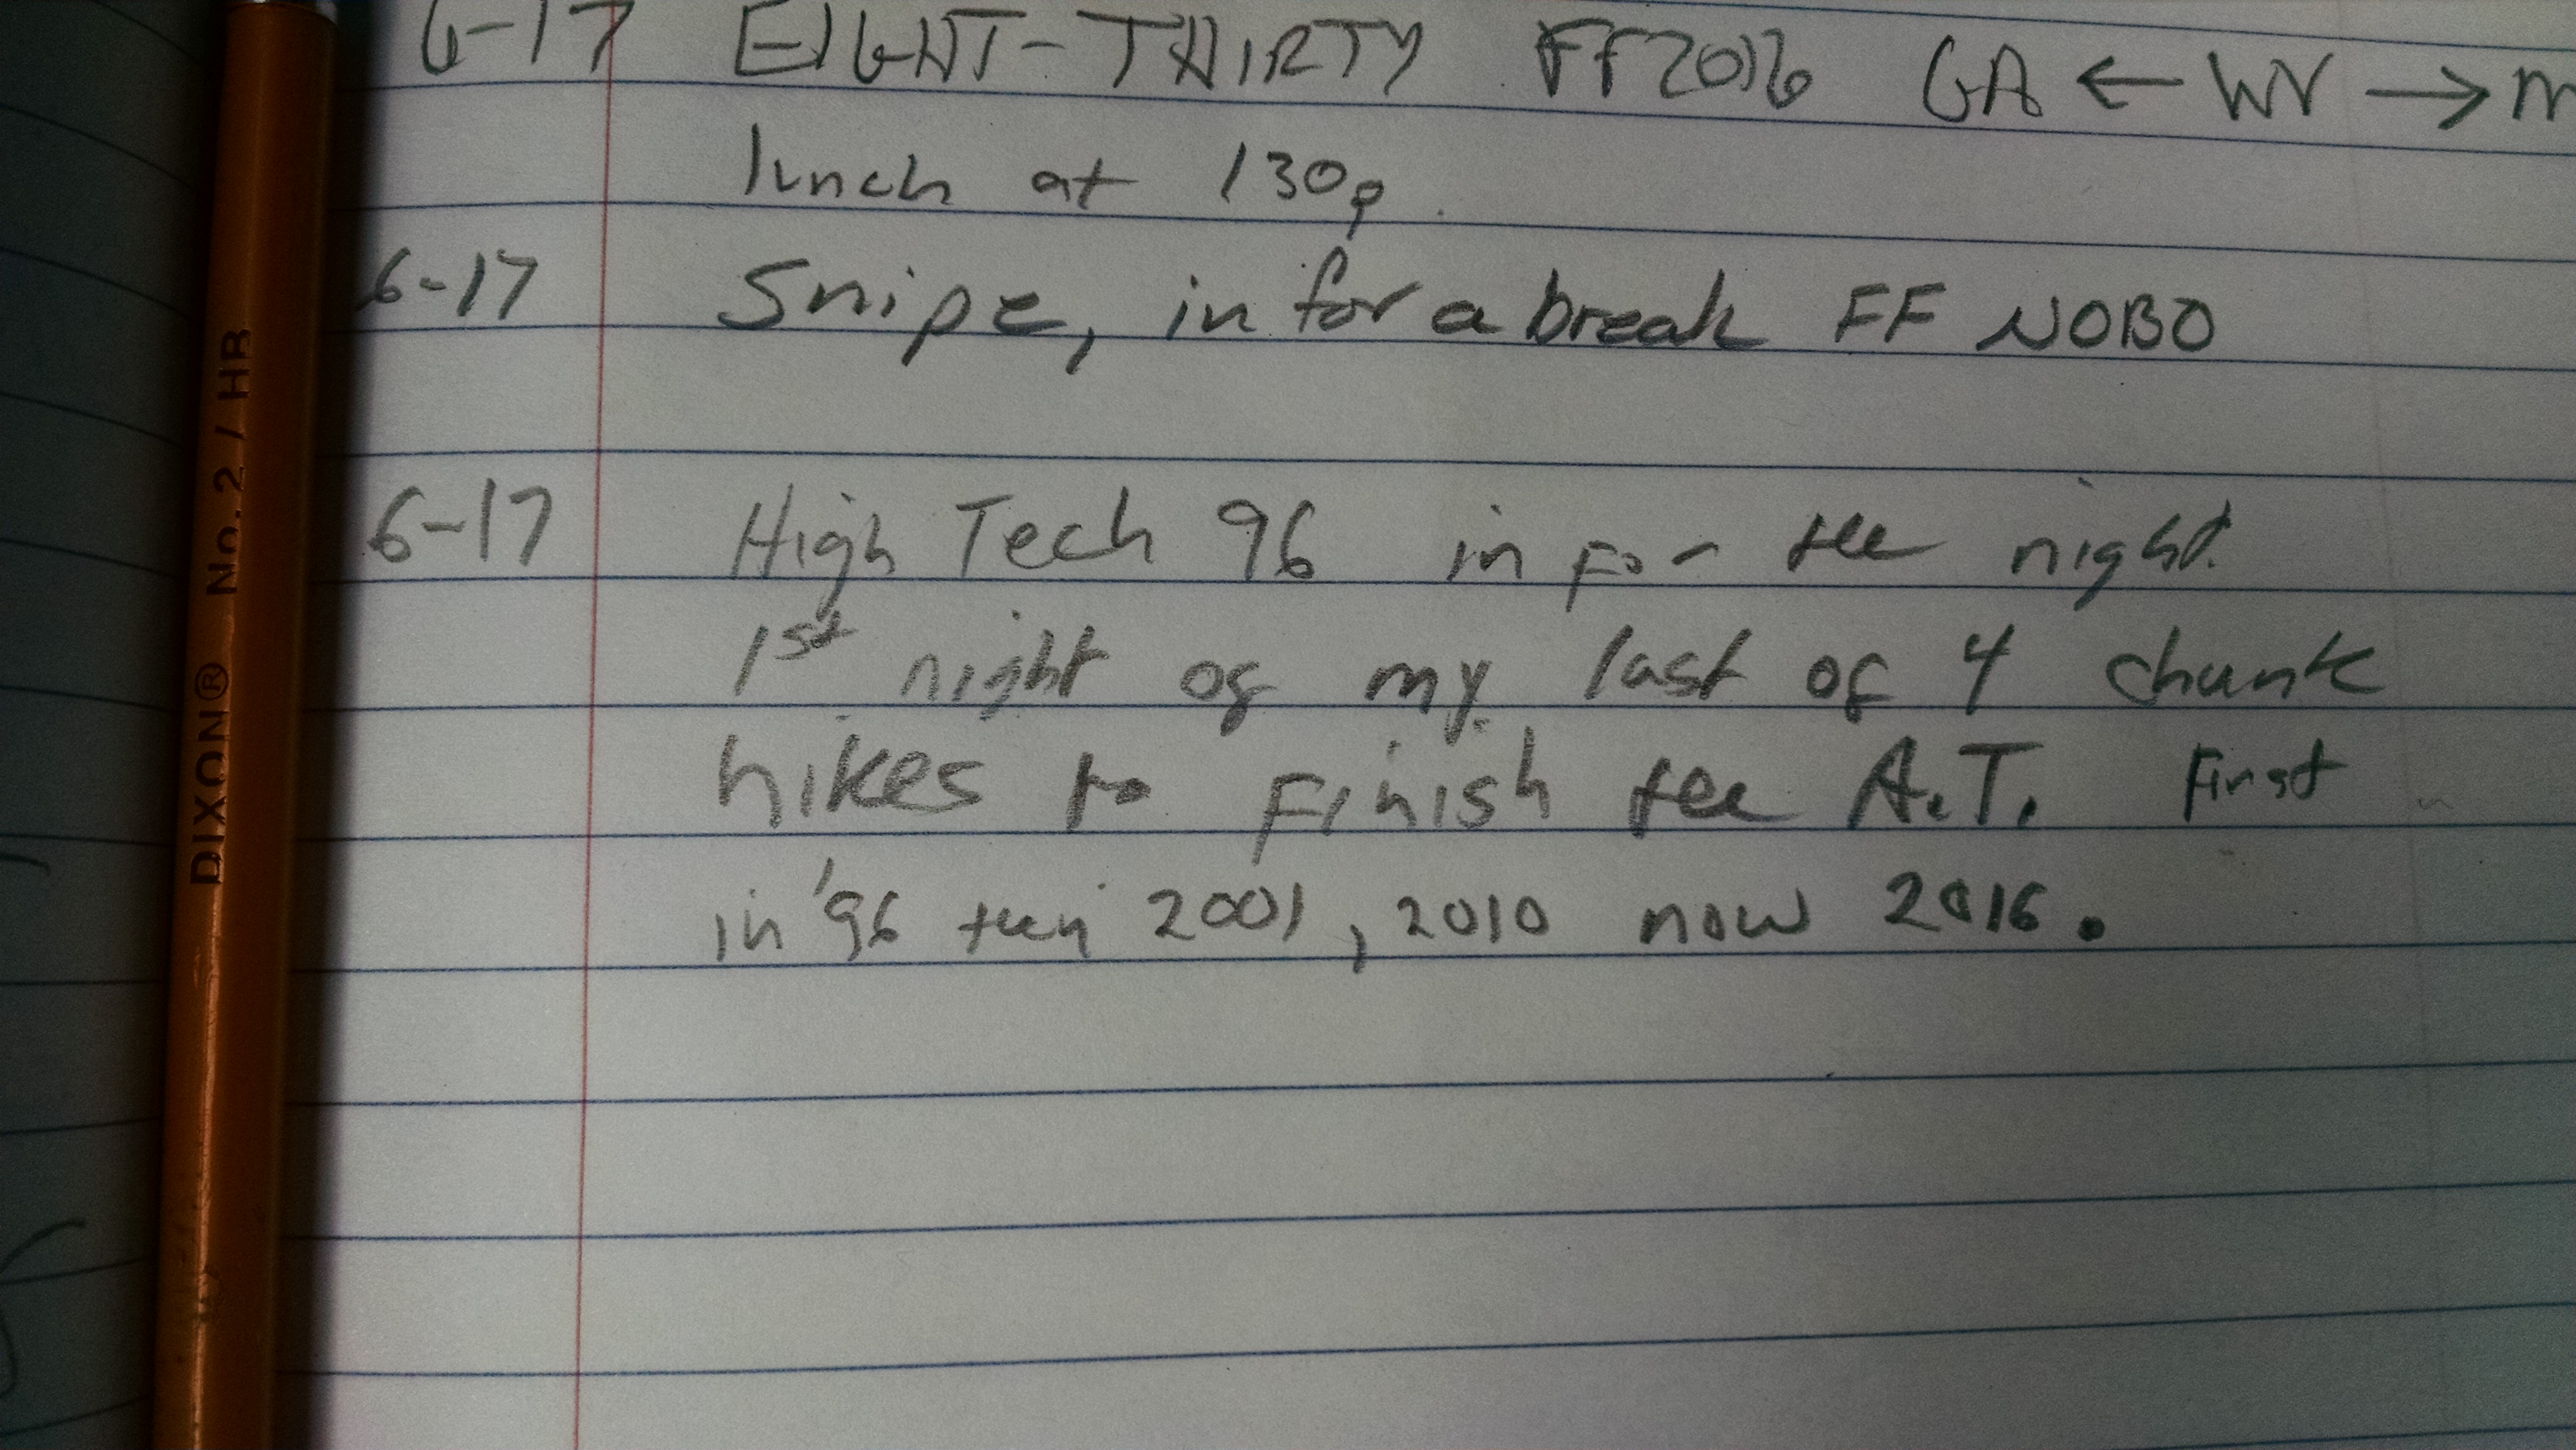 6-17 EIGHT-THIRTY FF2016 GA ← WV → M
lunch at 130p.
6-17 Snipe, in for a break FF NOBO
6-17 High Tech 96 in For the night.
1st night of my last of 4 chunk
hikes to Finish the A.T. First
in '96 then 2001, 2010 now 2016.
DIXON® No. 2 / HB